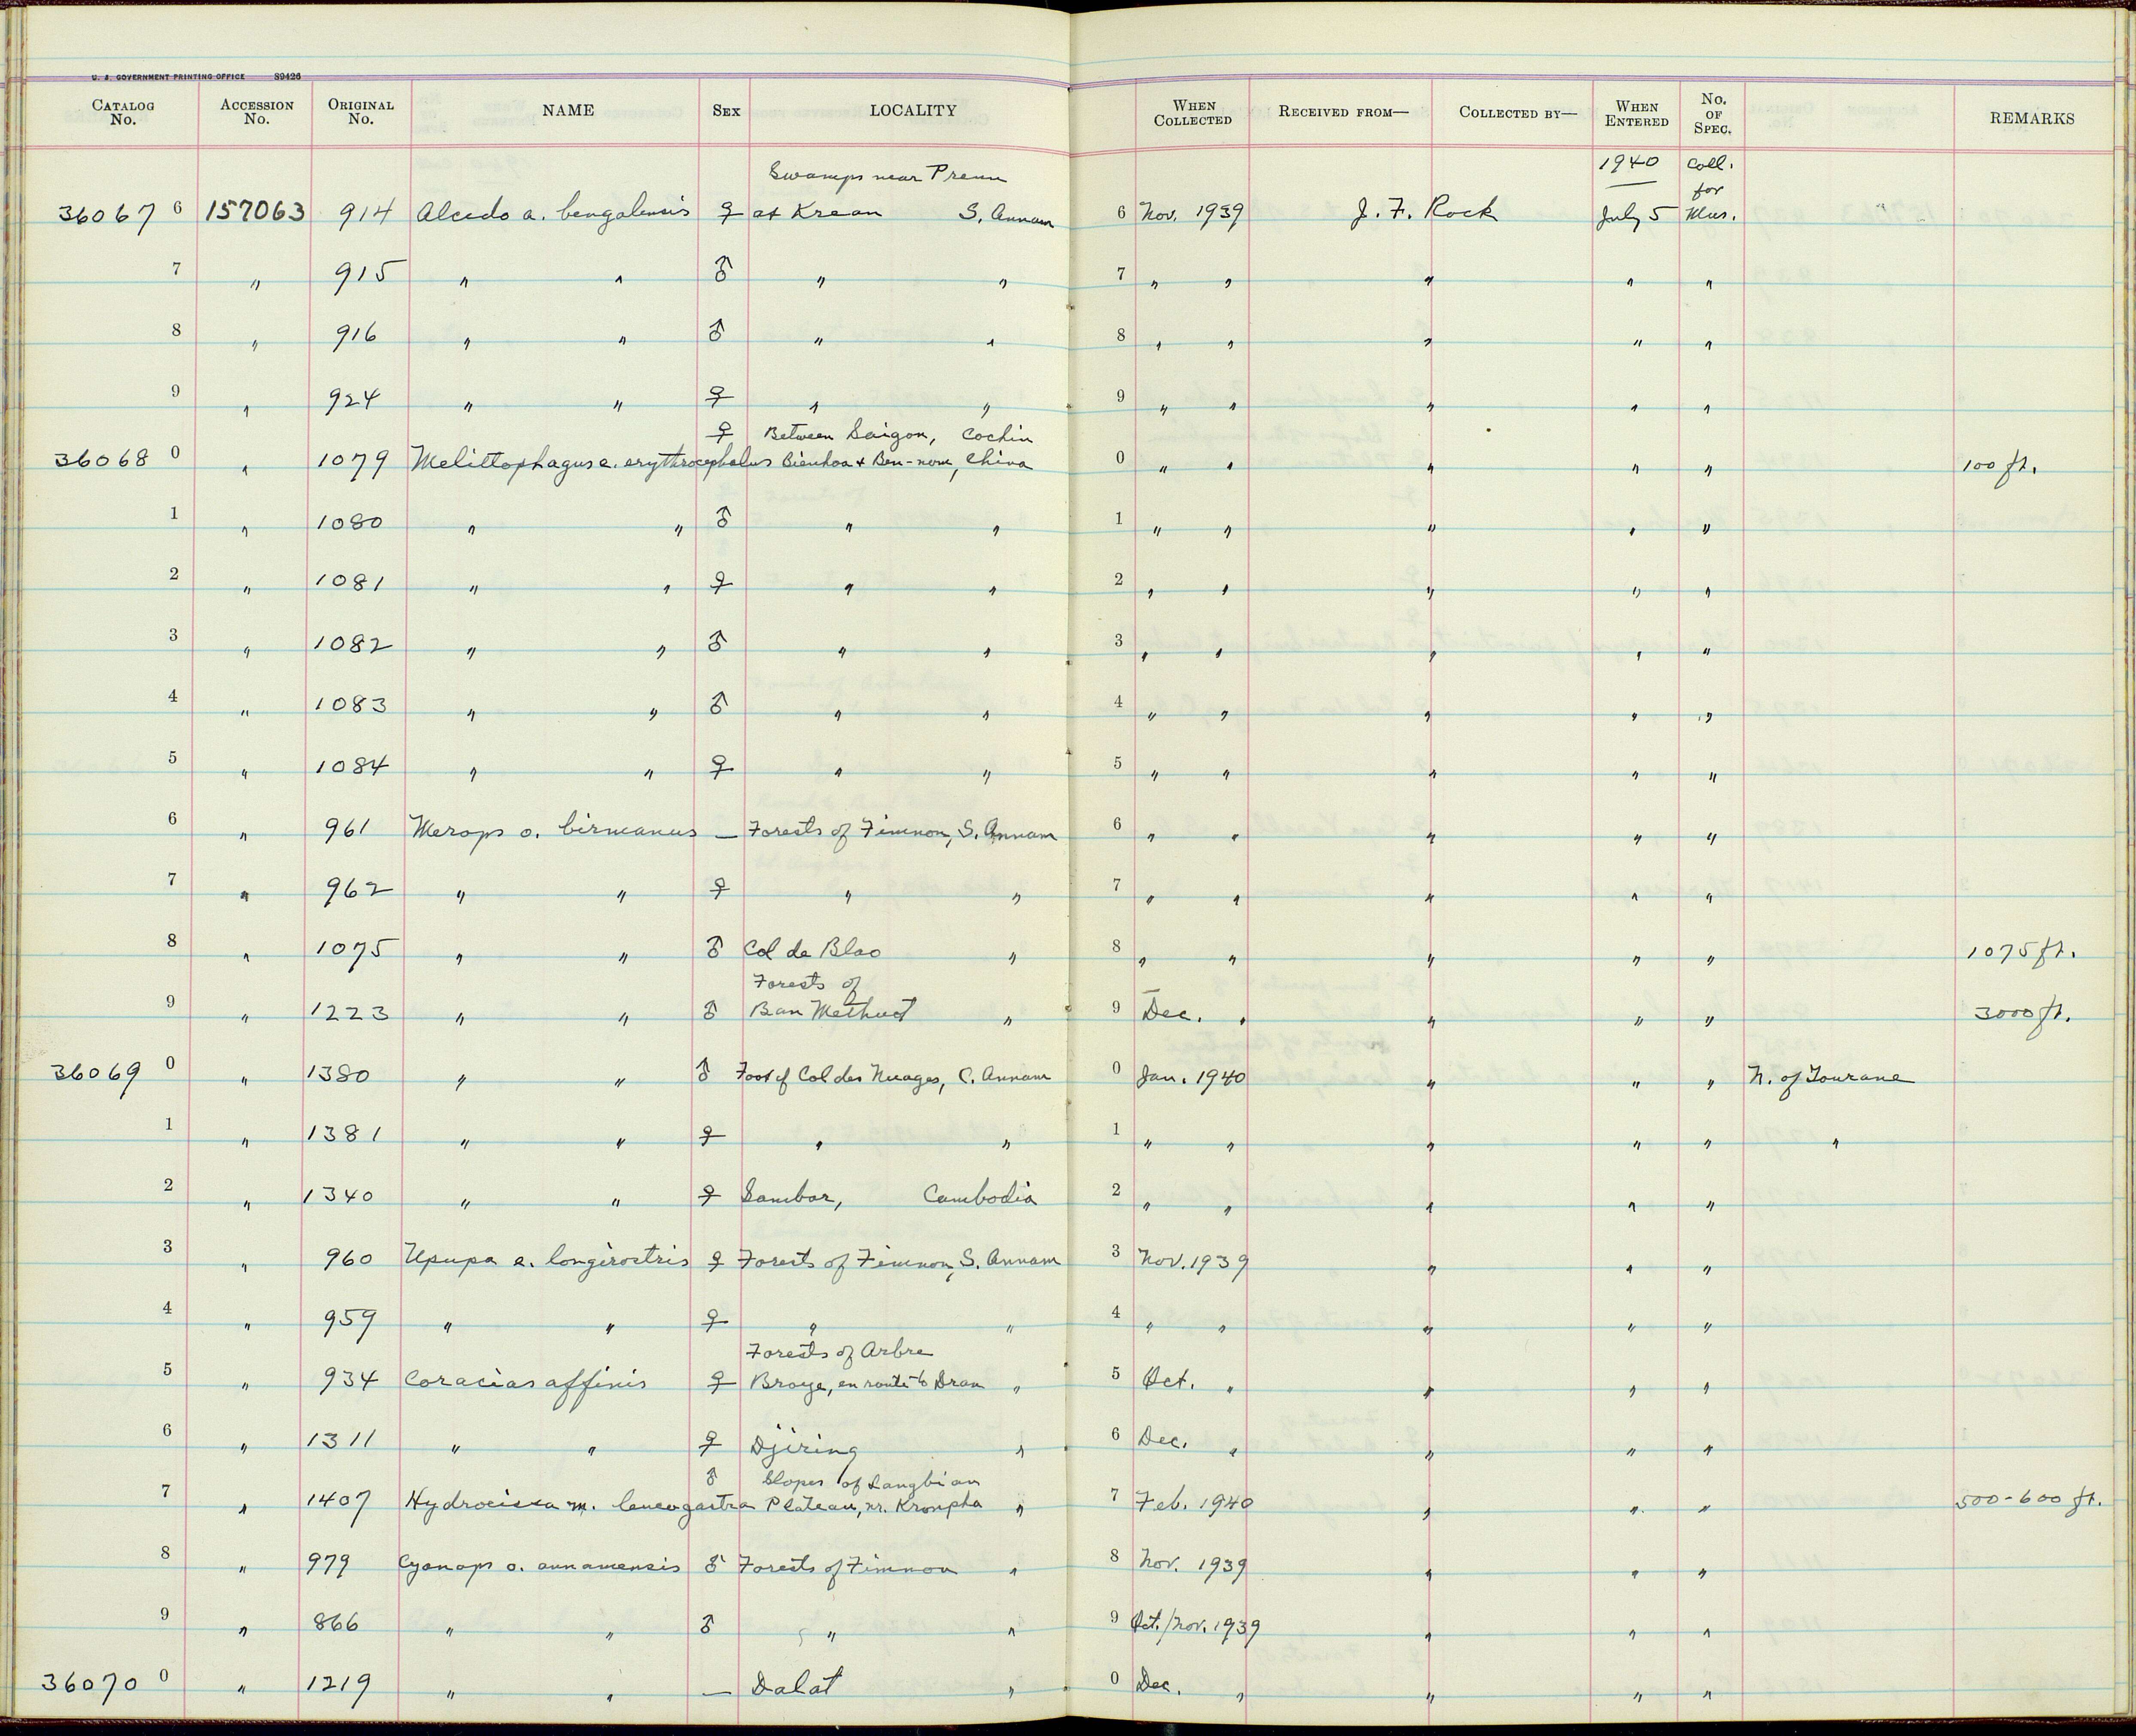 U. S. GOVERNMENT PRINTING OFFICE 89426
CATALOG No. ACCESSION No. ORIGINAL No. NAME SEX LOCALITY WHEN COLLECTED RECEIVED FROM— COLLECTED BY— WHEN ENTERED No. OF SPEC. REMARKS
Swamps near Prenn 1940 Coll. for
36067 6 157063 914 Alcedo a. bengalensis ♀ at Krean S. Annam 6 Nov. 1939 J. F. Rock July 5 Mus.
7 " 915 " " ♂ " " 7 " " " " "
8 " 916 " " ♂ " " 8 " " " " "
9 " 924 " " ♀ " " 9 " " " " "
♀ Between Saigon, Cochin
36068 0 " 1079 Melittophagus e. erythrocephalus Bienhoa + Ben-nom, China 0 " " " " " 100 ft.
1 " 1080 " " ♂ " " 1 " " " " "
2 " 1081 " " ♀ " " 2 " " " " "
3 " 1082 " " ♂ " " 3 " " " " "
4 " 1083 " " ♂ " " 4 " " " " "
5 " 1084 " " ♀ " " 5 " " " " "
6 " 961 Merops o. birmanus — Forests of Fimnon, S. Annam 6 " " " " "
7 " 962 " " ♀ " " 7 " " " " "
8 " 1075 " " ♂ Col de Blao " 8 " " " " " 1075 ft.
Forests of
9 " 1223 " " ♂ Ban Methuot " 9 Dec. " " " " 3000 ft.
36069 0 " 1380 " " ♂ Foot of Col des Nuages, C. Annam 0 Jan. 1940 " " " N. of Tourane
1 " 1381 " " ♀ " " 1 " " " " " "
2 " 1340 " " ♀ Sambor, Cambodia 2 " " " " "
3 " 960 Upupa e. longirostris ♀ Forests of Fimnon, S. Annam 3 Nov. 1939 " " "
4 " 959 " " ♀ " " 4 " " " " "
Forests of Arbre
5 " 934 Coracias affinis ♀ Broye, en route to Dran " 5 Oct. " " " "
6 " 1311 " " ♀ Djiring " 6 Dec. " " " "
♂ Slopes of Langbian
7 " 1407 Hydrocissa m. leucogastra Plateau, nr. Kronpha " 7 Feb. 1940 " " " 500-600 ft.
8 " 979 Cyanops o. annamensis ♂ Forests of Fimnon " 8 Nov. 1939 " " "
9 " 866 " " ♂ " " 9 Oct./Nov. 1939 " " "
36070 0 " 1219 " " — Dalat " 0 Dec. " " " "